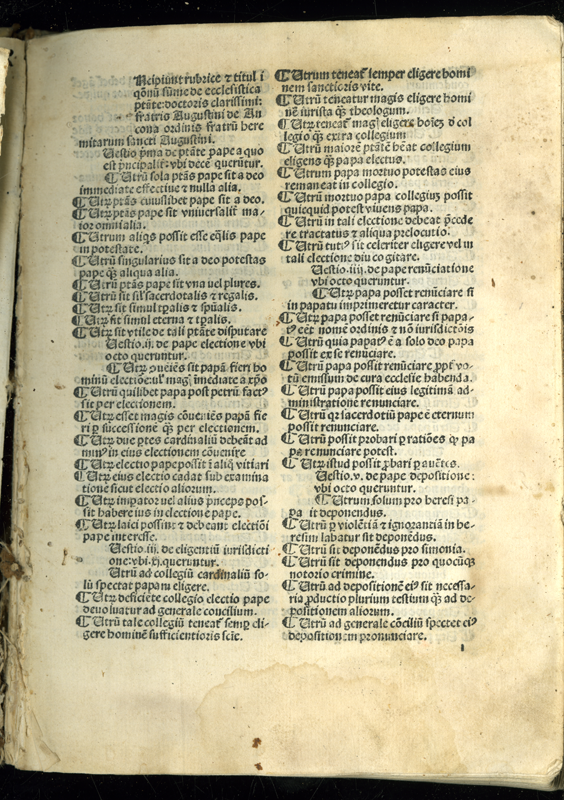 Ncipiunt rubrice ⁊ tituli
q̄onū sūme de ecclesiastica
ptāte: doctoris clarissimi:
fratris Augustini de An
cona ordinis fratrū here
mitarum sancti Augustini.
Uestio p̄ma de ptāte pape a quo
est pncipalit: vbi decē querūtur.
¶ Utrū sola ptās pape sit a deo
immediate effectiue ⁊ nulla alia.
¶ Utꝝ ptās cuiuslibet pape sit a deo.
¶ Utꝝ ptās pape sit vniuersalit̄ ma-
ior omni alia.
¶ Utrum aliq̄s possit esse eq̄lis pape
in potestate.
¶ Utrū singularius sit a deo potestas
pape q̄ꝫ aliqua alia.
¶ Utrū ptās pape sit vna vel plures.
¶ Utrū sit sil̄ sacerdotalis ⁊ regalis.
¶ Utꝝ sit simul tp̄alis ⁊ sp̄ualis.
¶ Utꝝ sit simul eterna ⁊ tp̄alis.
¶ Utꝝ sit vtile de tali ptāte disputare
Uestio .ij. de pape electione vbi
octo queruntur.
¶ Utꝝ ꝯueniēs sit papā fieri ho
minū electiōe: vl̓ mag̓ imediate a xp̄o
¶ Utrū quilibet papa post petrū factꝰ
sit per electionem.
¶ Utꝝ esset magis cōueniēs papā fie
ri ꝑ successionē q̄ꝫ per electionem.
¶ Utꝝ due ptes cardinaliū debeāt ad
minꝰ in eius electionem cōuenire
¶ Utꝝ electio pape possit ī aliq̄ vitiari
¶ Utꝝ eius electio cadat sub examina
tione sicut electio aliorum.
¶ Utꝝ imp̄ator vel alius p̄nceps pos-
sit habere ius in electione pape.
¶ Utꝝ laici possint ⁊ debeant electiōi
pape interesse.
Uestio .iij. de eligentiū iurisdicti
one: vbi .xj. queruntur.
Utrū ad collegiū cardinaliū so-
lū spectat papam eligere.
¶ Utꝝ deficiēte collegio electio pape
deuoluatur ad generale concilium.
¶ Utrū tale collegiū teneat̄ semꝑ eli-
gere hominē sufficientioris scīe.
¶ Utrum teneat̄ semper eligere homi
nem sanctioris vite.
¶ Utrū teneatur magis eligere homi
nē iurista q̄ꝫ theologum.
¶ Utꝝ teneat̄ mag̓ eligere hoīeꝫ d̓ col
legio q̄ꝫ extra collegium
¶ Utrū maiorē ptātē hēat collegium
eligens q̄ꝫ papa electus.
¶ Utrum papa mortuo potestas eius
remaneat in collegio.
¶ Utrū mortuo papa collegiuꝫ possit
quicquid potest viuens papa.
¶ Utrū in tali electione debeat p̄cede
re tractatus ⁊ aliqua prelocutio.
¶ Utrū tutiꝰ sit celeriter eligere vel in
tali electione diu cogitare.
Uestio .iiij. de pape renūciatione
vbi octo queruntur.
¶ Utꝝ papa posset renūciare si
in papatu imprimeretur caracter.
¶ Utꝝ papa posset renūciare si papa-
tꝰ eēt nomē ordinis ⁊ nō iurisdictōis
¶ Utrū quia papatꝰ ē a solo deo papa
possit ex se renūciare.
¶ Utrū papa possit renūciare ꝓpt̄ vo-
tū emissum de cura ecclesie habenda.
¶ Utrū papa possit eius legitimā ad-
ministratione renunciare.
¶ Utrū qꝛ sacerdotiū pape ē eternum
possit renunciare.
¶ Utrū possit probari ꝑ ratiōes ꝙ pa
pa renunciare potest.
¶ Utꝝ istud possit ꝓbari ꝑ auctes.
Uestio .v. de pape depositione:
vbi octo queruntur.
¶ Utrum solum pro heresi pa-
pa sit deponendus.
¶ Utrū ꝑ violētiā ⁊ ignorantiā in he-
resim labatur sit deponēdus.
¶ Utrū sit deponēdus pro simonia.
¶ Utrū sit deponendus pro quocūqꝫ
notorio crimine.
¶ Utrū ad depositionē eiꝰ sit necessa-
ria ꝓductio plurium testium q̄ꝫ ad de-
positionem aliorum.
¶ Utrū ad generale cōciliū spectet eiꝰ
depositionem pronunciare.
1